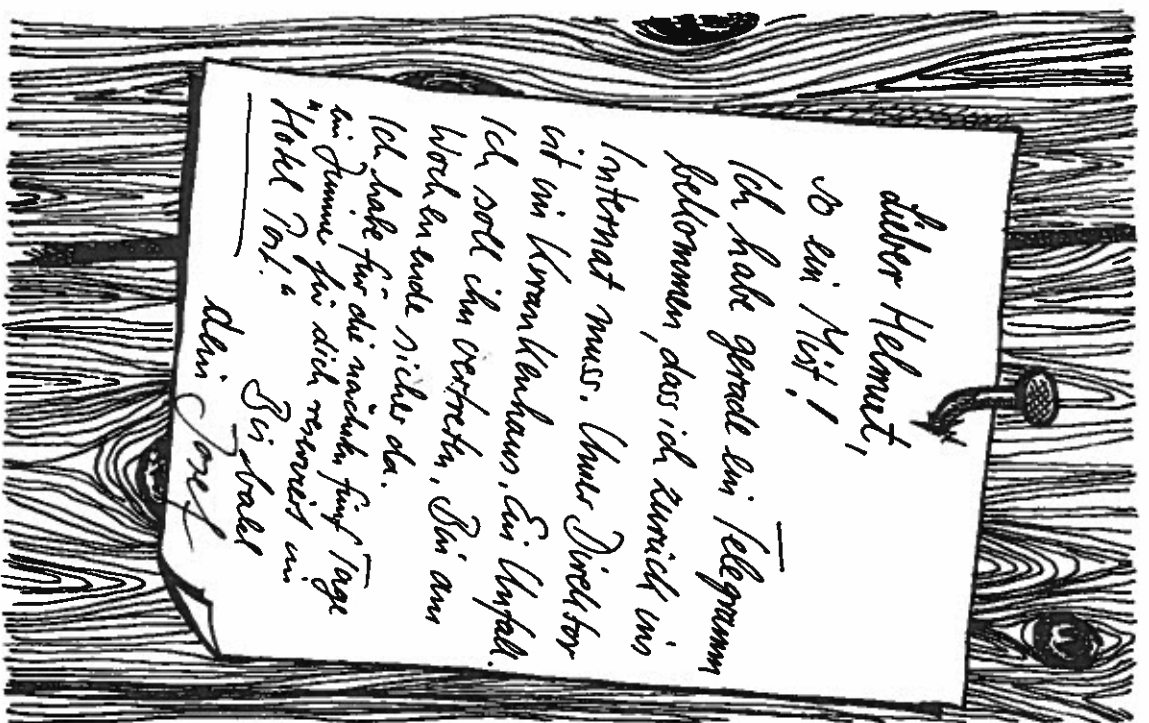 Lieber Helmut,
so ein Mist!
Ich habe gerade ein Telegramm
bekommen, dass ich zurück ins
Internat muss. Unser Direktor
ist im Krankenhaus. Ein Unfall.
Ich soll ihn vertreten. Bin am
Wochenende sicher da.
Ich habe für die nächsten fünf Tage
ein Zimmer für dich reserviert im
"Hotel Post."
Bis bald
dein Josef